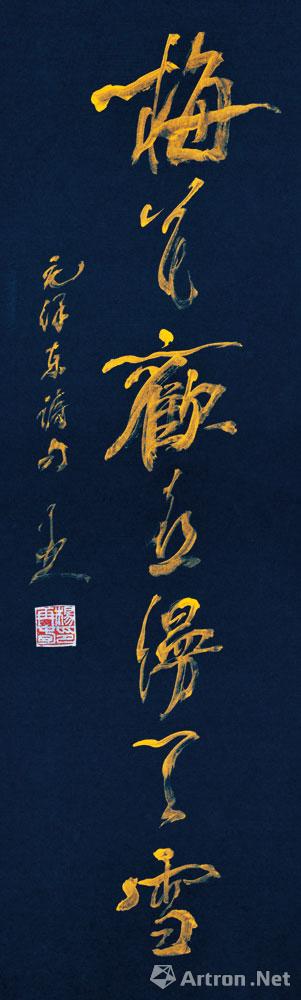 梅花歡喜漫天雪
毛泽东诗句
Artron.Net